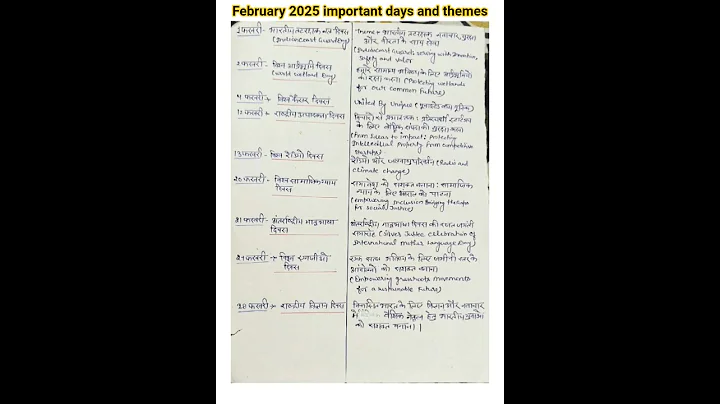 February 2025 important days and themes
1 फरवरी - भारतीय तटरक्षक बल दिवस
(Indian Coast Guard Day)
Theme+ भारतीय तटरक्षक नवाचार सुरक्षा
और वीरता के साथ सेवा
(Indian Coast Guards serving with Innovation,
Safety and Valor
2 फरवरी - विश्व आर्द्रभूमि दिवस
(World wetland Day)
हमारे सामान्य भविष्य के लिए आर्द्रभूमियों
की रक्षा करना (Protecting wetlands
for our common Future)
4 फरवरी + विश्व कैंसर दिवस
United By Unique (यूनाइटेड बाय यूनिक)
12 फरवरी + राष्ट्रीय उत्पादकता दिवस
विचारों से प्रभाव तक: प्रतिस्पर्धी स्टार्टअप
के लिए बौद्धिक संपदा की सुरक्षा करना
(From Ideas to impact: Protecting
Intellectual Property from competitive
startups
13 फरवरी - विश्व रेडियो दिवस
रेडियो और जलवायु परिवर्तन (Radio and
climate change)
20 फरवरी - विश्व सामाजिक न्याय
दिवस
समावेश को सशक्त बनाना: सामाजिक
न्याय के लिए अंतराल को पाटना
(Empowering Inclusion: Bridging the Gaps
for social Justice)
21 फरवरी - अंतर्राष्ट्रीय मातृभाषा
दिवस
अंतर्राष्ट्रीय मातृभाषा दिवस की रजत जयंती
समारोह (Silver Jubilee celebration of
International Mother Language Day)
27 फरवरी + विश्व एनजीओ
दिवस
एक सतत भविष्य के लिए जमीनी स्तर के
आंदोलनों को सशक्त बनाना
(Empowering grassroots movements
for a sustainable Future)
28 फरवरी + राष्ट्रीय विज्ञान दिवस
विकसित भारत के लिए विज्ञान और नवाचार
में वैश्विक नेतृत्व हेतु भारतीय युवाओं
को सशक्त बनाना) |